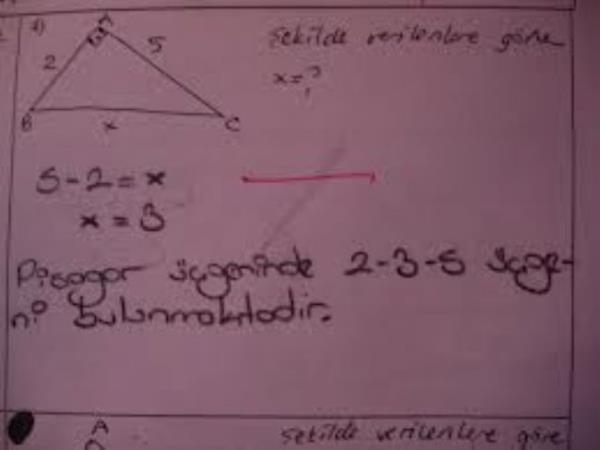 4) A
2 5 Şekilde verilenlere göre
x = ?
B x C
5 - 2 = x
x = 3
Pisagor üçgeninde 2-3-5 üçge-
ni bulunmaktadır.
A
Şekilde verilenlere göre